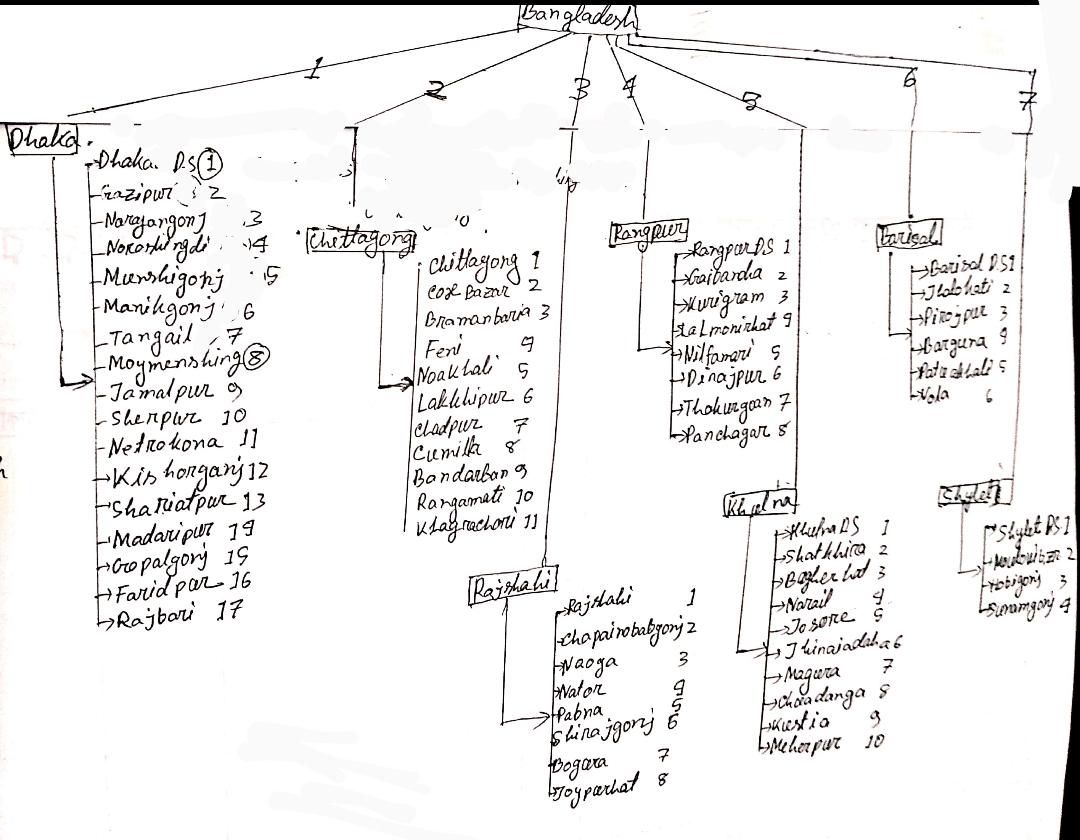 Bangladesh
1
2
3
4
5
6
7
Dhaka
Dhaka D.S 1
Gazipur 2
Narayangonj 3
Noroshingdi 4
Munshigonj 5
Manikgonj 6
Tangail 7
Moymenshing 8
Jamalpur 9
Sherpur 10
Netrokona 11
Kishorganj 12
Shariatpur 13
Madaripur 14
Gopalgonj 15
Faridpur 16
Rajbari 17
Chittagong
Chittagong 1
Cox Bazar 2
Bramanbaria 3
Feni 4
Noakhali 5
Lakkhipur 6
Cladpur 7
Cumilla 8
Bandarban 9
Rangamati 10
Khagrachori 11
Rajshahi
Rajshahi 1
Chapainobabgonj 2
Naoga 3
Nator 4
Pabna 5
Shirajgonj 6
Bogura 7
Joypurhat 8
Rangpur
Rangpur DS 1
Gaibandha 2
Kurigram 3
Lalmonirhat 4
Nilfamari 5
Dinajpur 6
Thakurgoan 7
Panchagar 8
Khulna
Khulna DS 1
Shatkhira 2
Bagherhat 3
Narail 4
Josore 5
Jhinaiadaha 6
Magura 7
Chuadanga 8
Kustia 9
Meherpur 10
Barisal
Barisal DS 1
Jhalokati 2
Pirojpur 3
Barguna 4
Patuakhali 5
Vola 6
Shylet
Shylet DS 1
Moulouibzr 2
Hobigonj 3
Sunamgonj 4